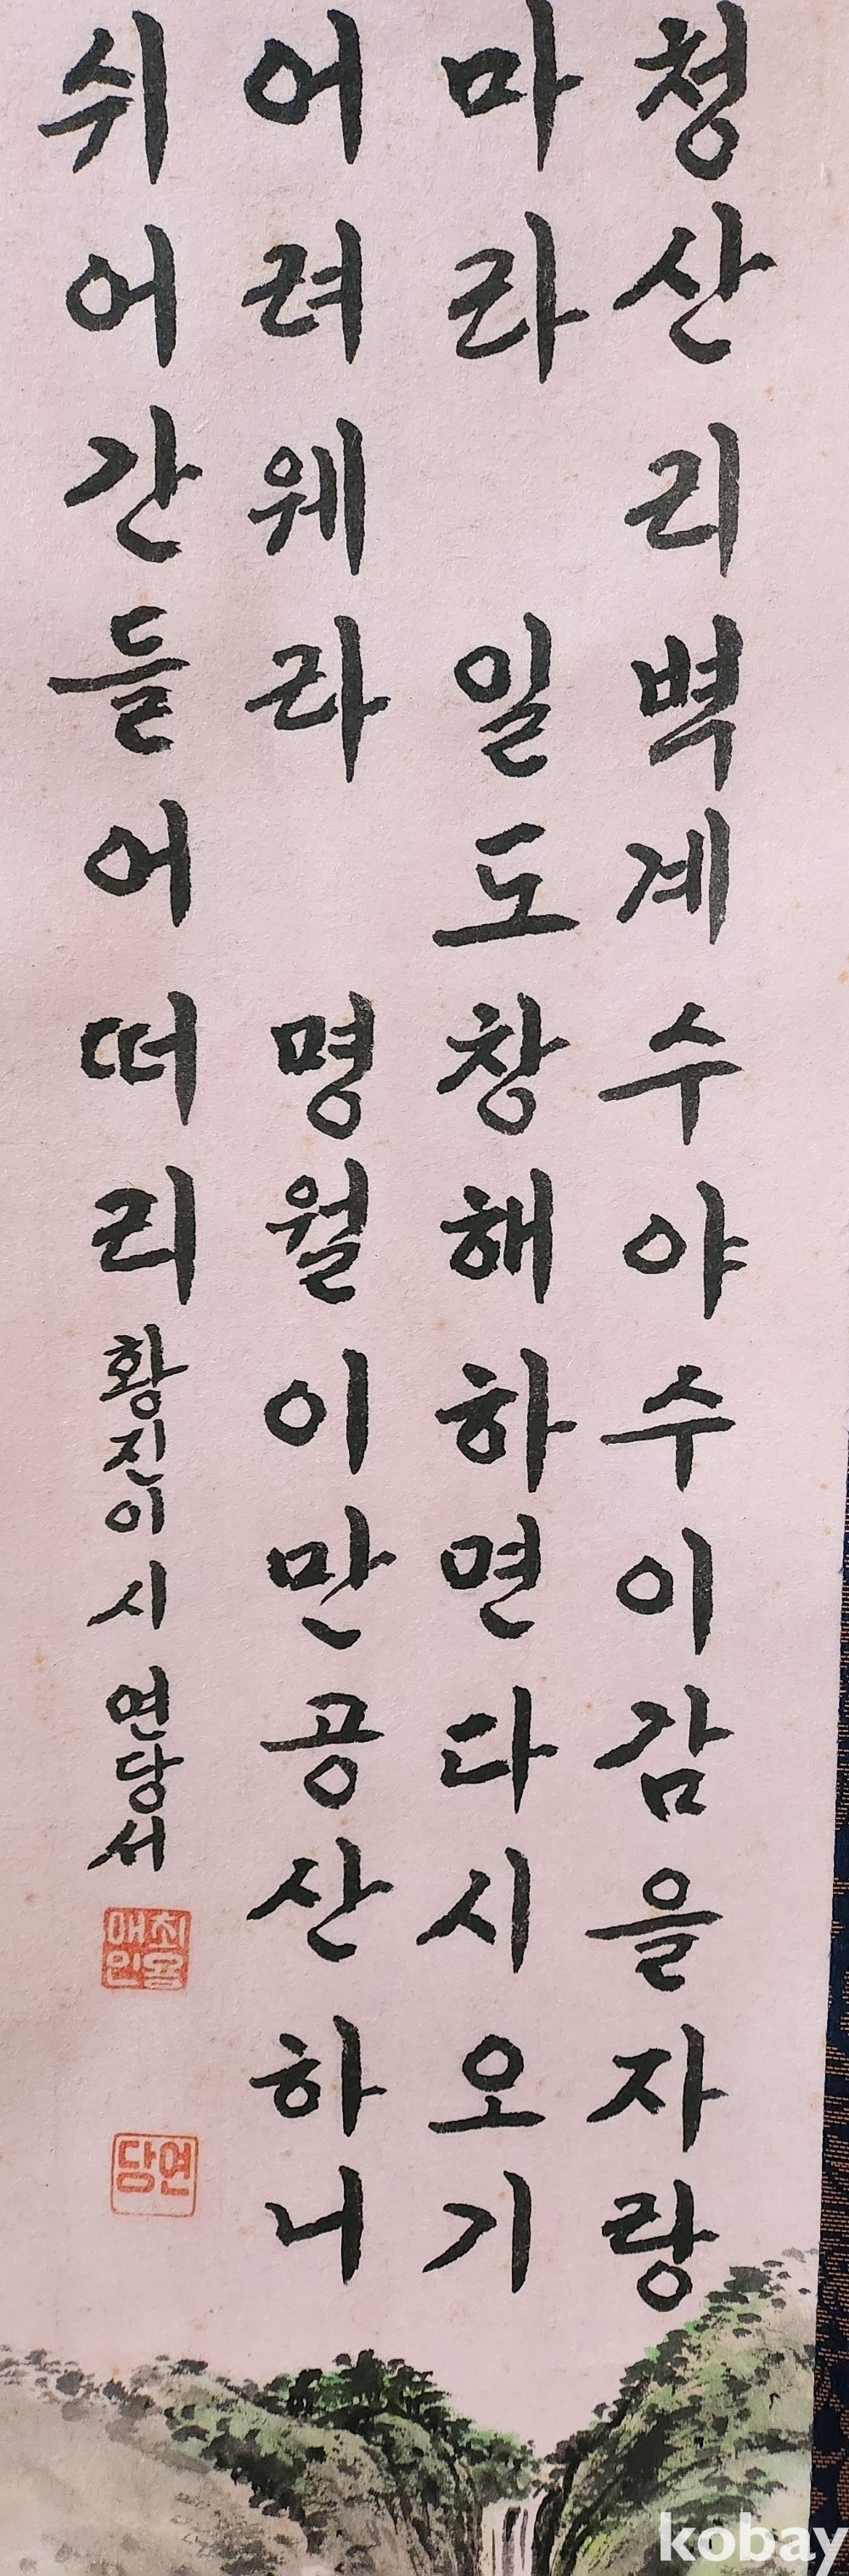 청산리벽계수야수이감을자랑
마라 일도창해하면다시오기
어려웨라 명월이만공산하니
쉬어간들어떠리 황진이 시 연당서
최용
매인
연당
kobay